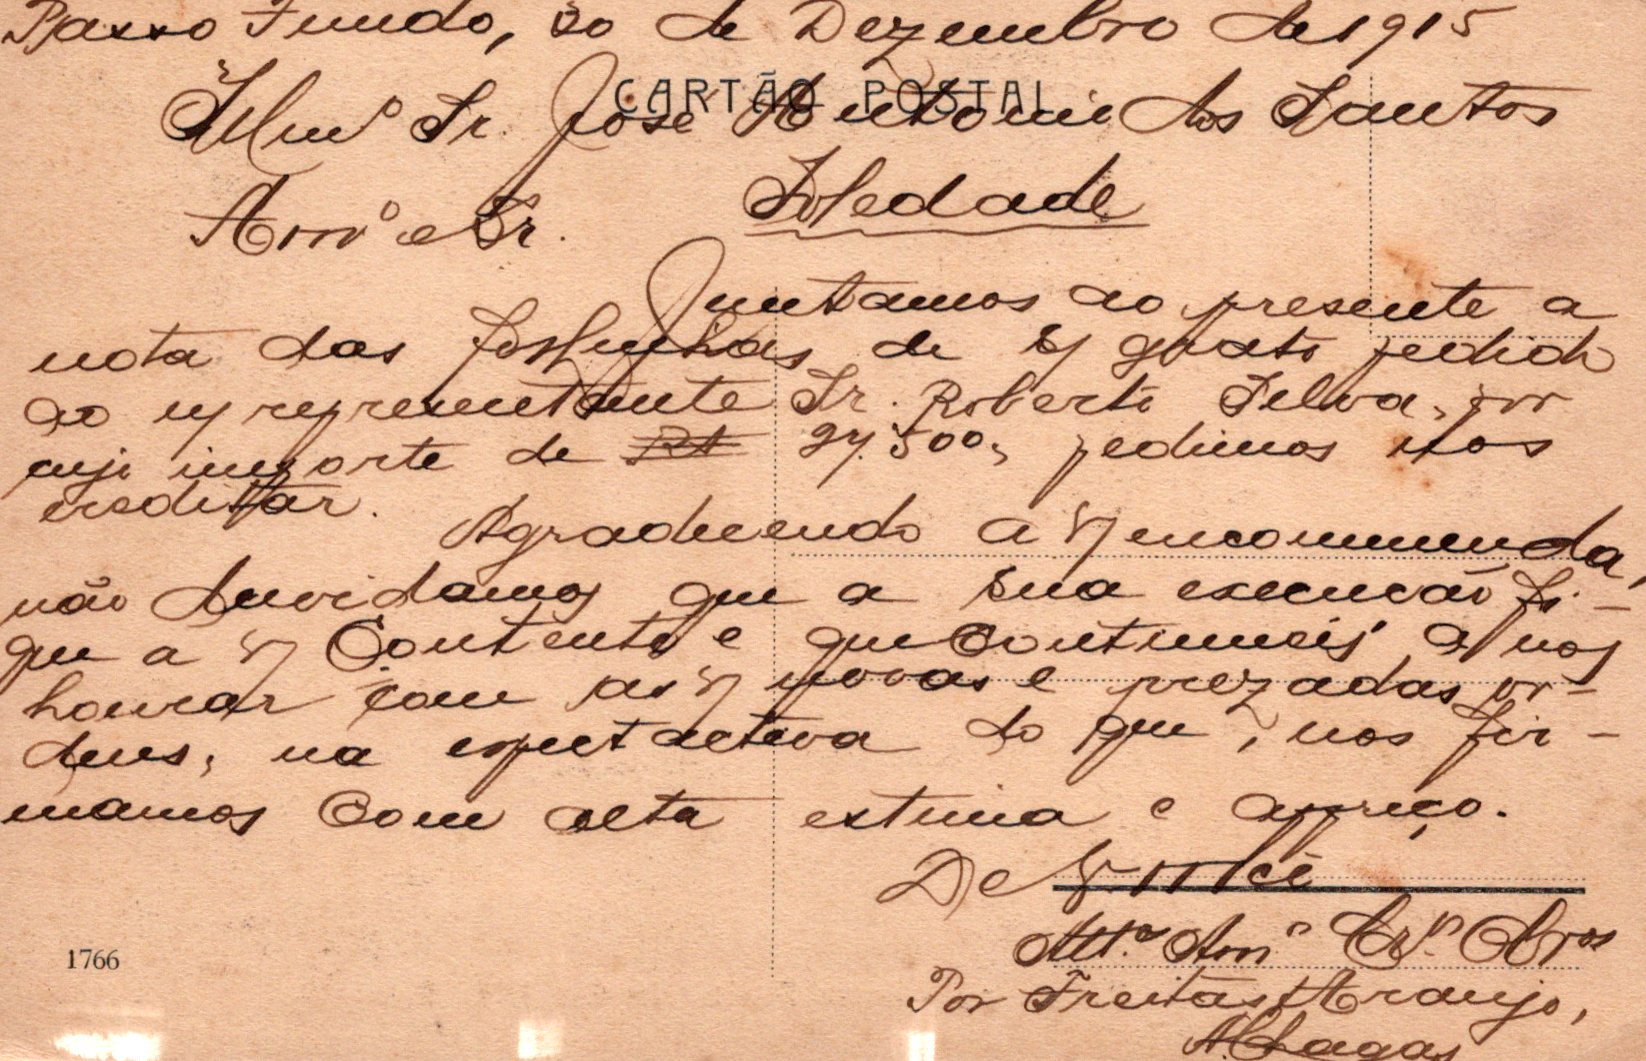 Passo Fundo, 30 de Dezembro de 1915
CARTÃO POSTAL
Illmº Sr. José Antonio dos Santos
Soledade
Amº e Sr.
Juntamos ao presente a
nota das folhinhas de
ao n/ representante Sr. Roberto Silva, por
cujo importe de 27.500, pedimos nos
creditar.
Agradecendo a v/ encommenda,
não duvidamos que a sua execucão fi-
que a v/ contento e que continueis a nos
honrar com as v/ novas e prezadas or-
dens, na expectactiva do que, nos fir-
mamos com alta estima e apreço.
De V. Mcê
Attºs Amºs Crºs Obrºs
Por Freitas Araujo,
A. Chagas
1766